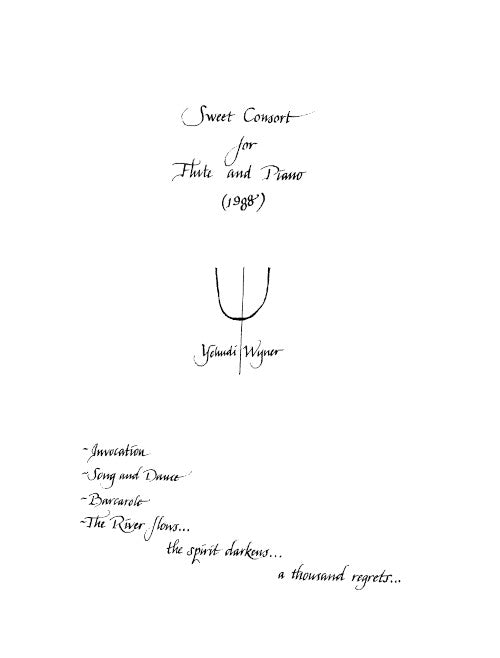 Sweet Consort
for
Flute and Piano
(1988)
Yehudi Wyner
~Invocation
~Song and Dance
~Barcarole
~The River flows...
the spirit darkens...
a thousand regrets...